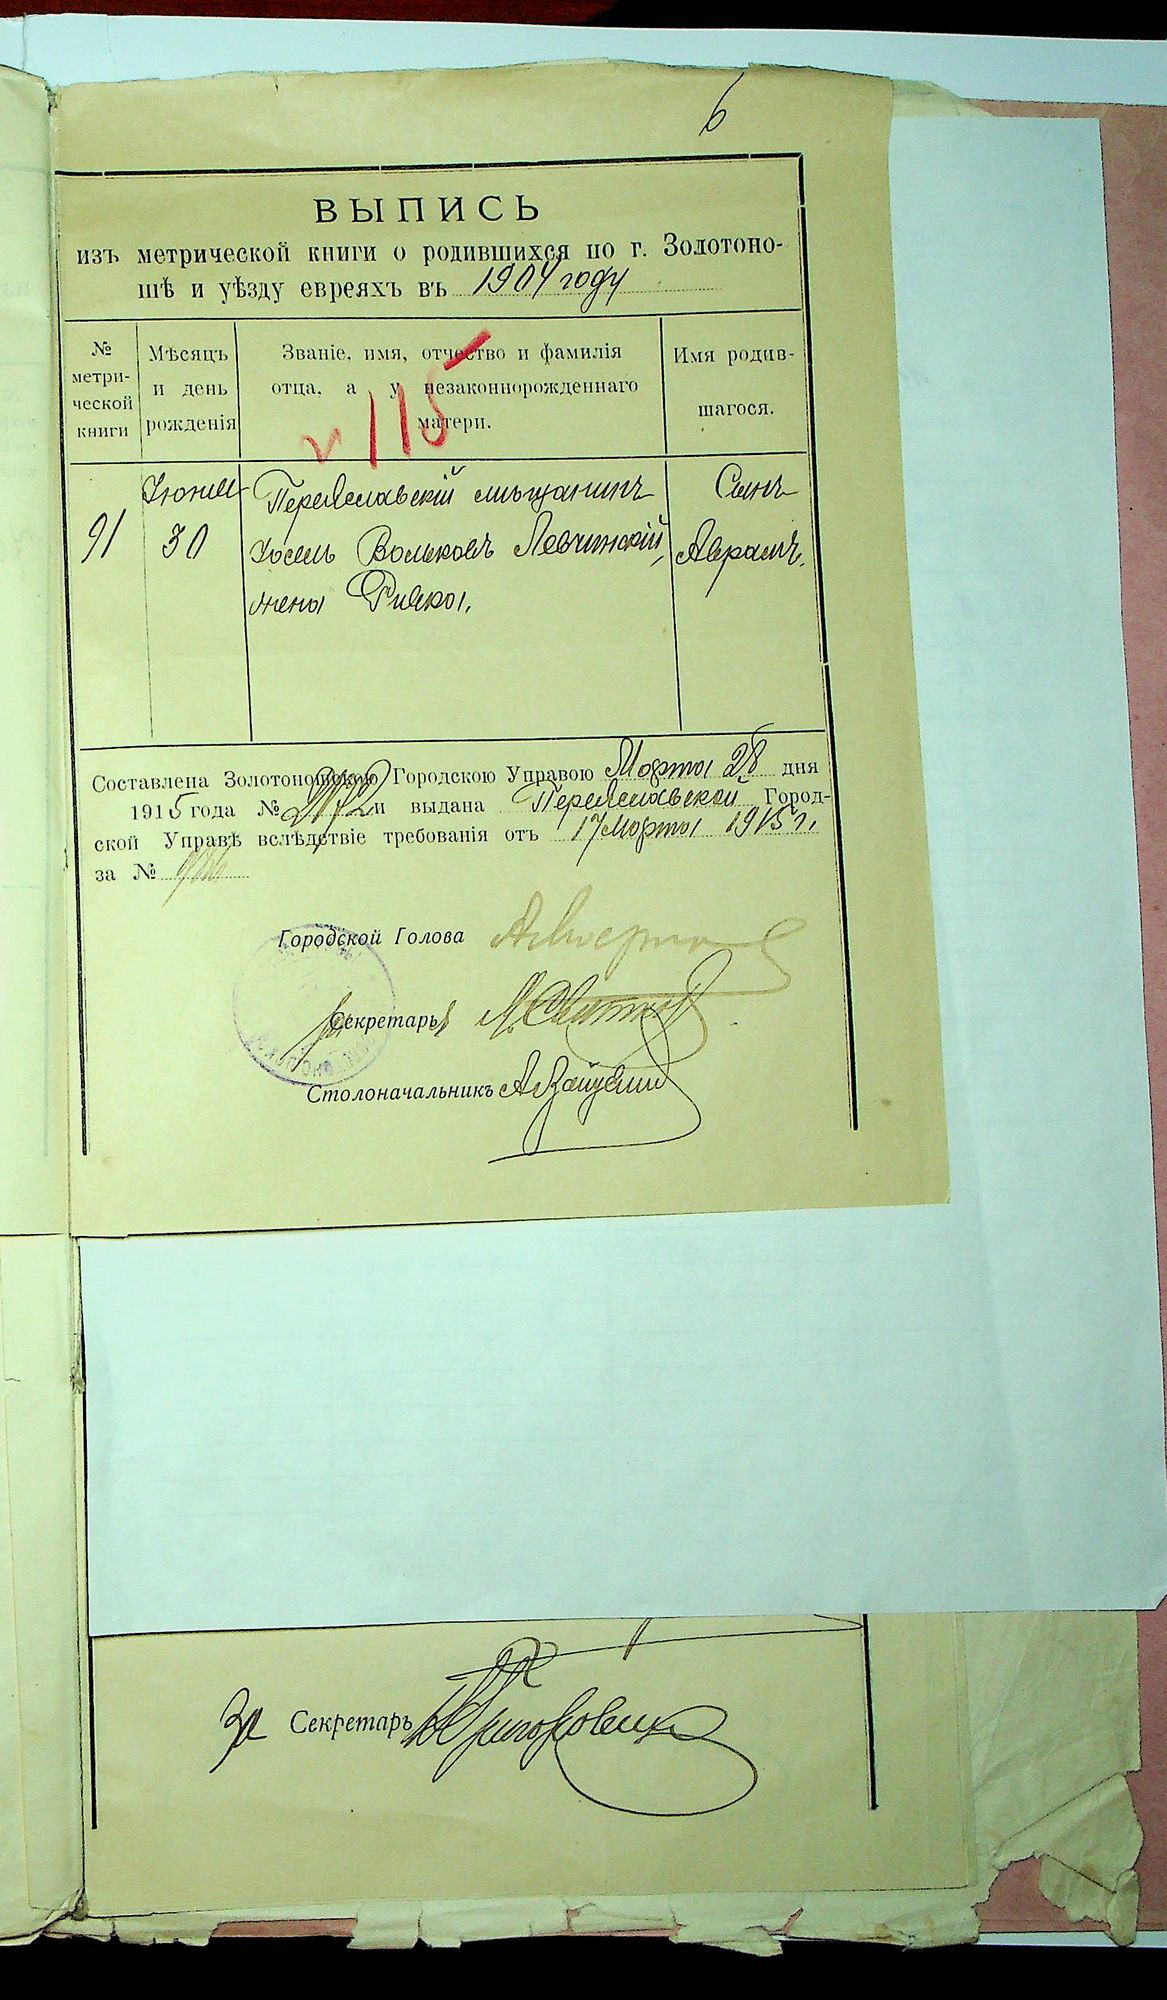 6
ВЫПИСЬ
изъ метрической книги о родившихся по г. Золотоно-
шѣ и уѣзду евреяхъ въ 1904 году
№ метри-ческой книги
Мѣсяцъ и день рожденія
Званіе, имя, отчество и фамилія
отца, а у незаконнорожденнаго
матери.
Имя родив-
шагося.
115
91
Іюня
30
Переяславскій мѣщанинъ
Іосель Вольковъ Левчинскій,
жены Ривки.
Сынъ
Аврамъ.
Составлена Золотоношскою Городскою Управою Марта 28 дня
1915 года № и выдана Переяславской Город-
ской Управѣ вслѣдствіе требованія отъ 17 Марта 1915 г.
за №
Городской Голова
Секретарь
Столоначальникъ
За Секретарь Григоровичъ